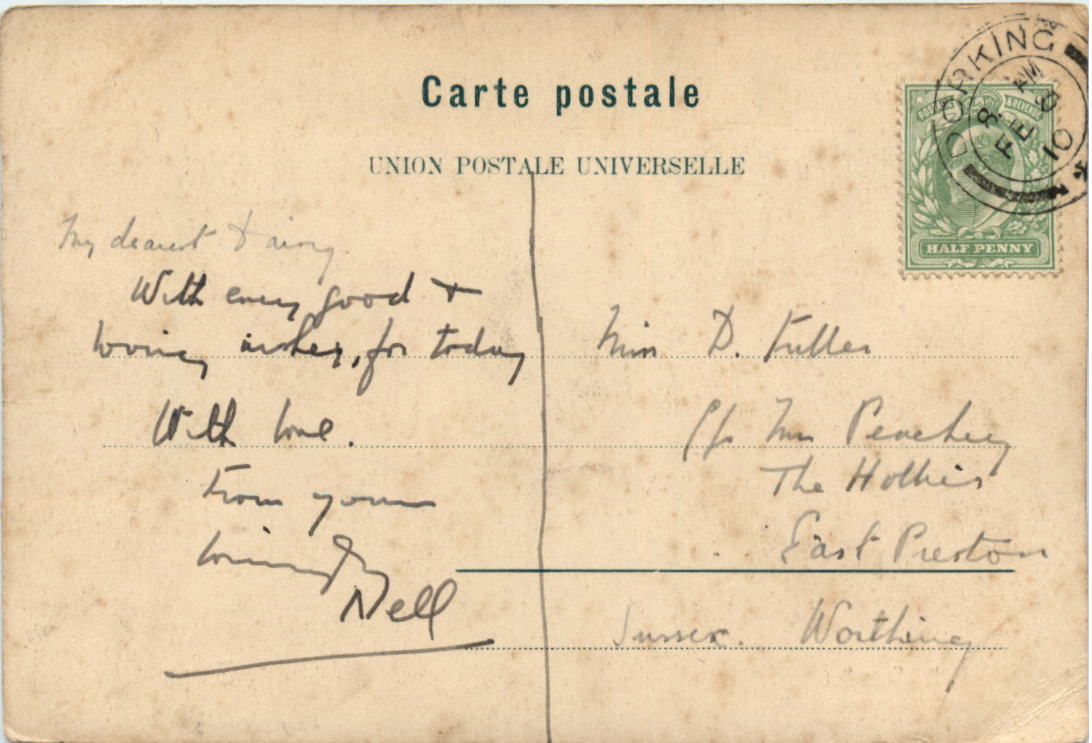 Carte postale
UNION POSTALE UNIVERSELLE
DORKING
8 AM
FE 9
10
HALF PENNY
My dearest Daisy
With every good &
loving wishes, for today
With love.
From yours
lovingly
Nell
Miss D. Fuller
c/o Mrs Peachey
The Hollies
East Preston
Sussex. Worthing